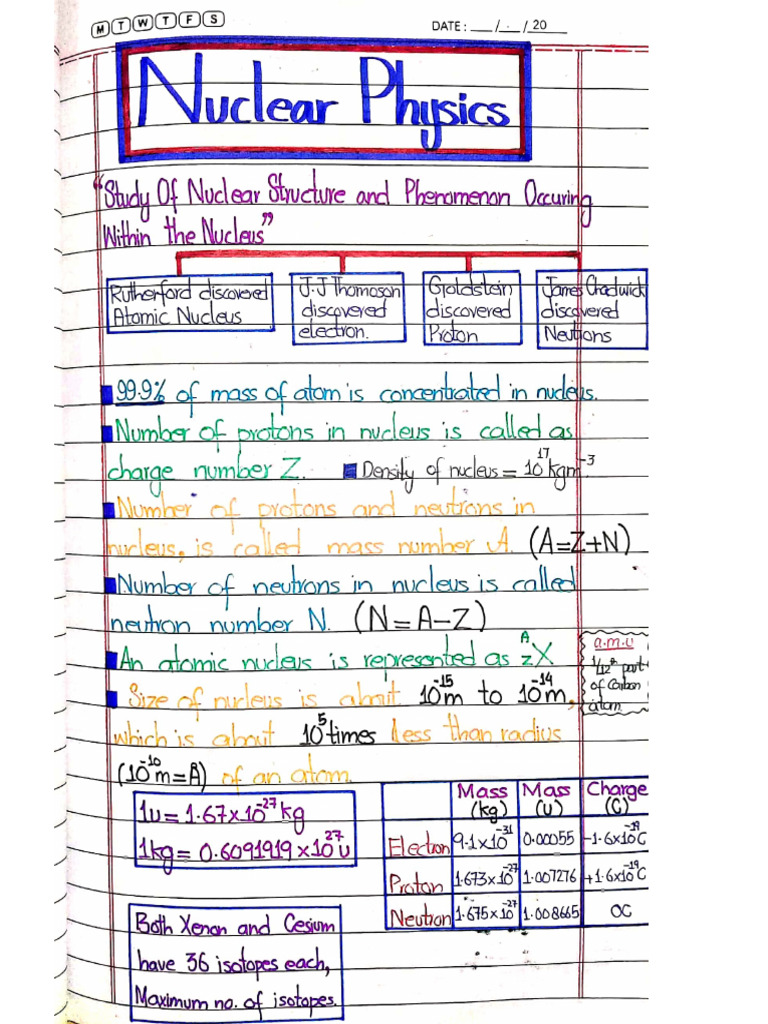 M T W T F S
DATE: __/__/20__
Nuclear Physics
"Study Of Nuclear Structure and Phenomenon Occuring
Within the Nucleus"
Rutherford discovered
Atomic Nucleus
J.J Thomoson
discovered
electron.
Goldstein
discovered
Proton
James Chadwick
discovered
Neutrons
99.9% of mass of atom is concentrated in nucleus.
Number of protons in nucleus is called as
charge number Z. Density of nucleus = 10¹⁷ kgm⁻³
Number of protons and neutrons in
nucleus, is called mass number A. (A=Z+N)
Number of neutrons in nucleus is called
neutron number N. (N=A-Z)
An atomic nucleus is represented as ᴬzX
a.m.u
1/12ᵗʰ part
of Carbon
atom
Size of nucleus is about 10⁻¹⁵m to 10⁻¹⁴m,
which is about 10⁵ times less than radius
(10⁻¹⁰m=Å) of an atom.
1u = 1.67×10⁻²⁷ kg
1kg = 0.6091919 ×10²⁷ u
Mass (kg) Mass (U) Charge (C)
Electron 9.1×10⁻³¹ 0.00055 -1.6×10⁻¹⁹C
Proton 1.673×10⁻²⁷ 1.007276 +1.6×10⁻¹⁹C
Neutron 1.675×10⁻²⁷ 1.008665 0C
Both Xenon and Cesium
have 36 isotopes each,
Maximum no. of isotopes.